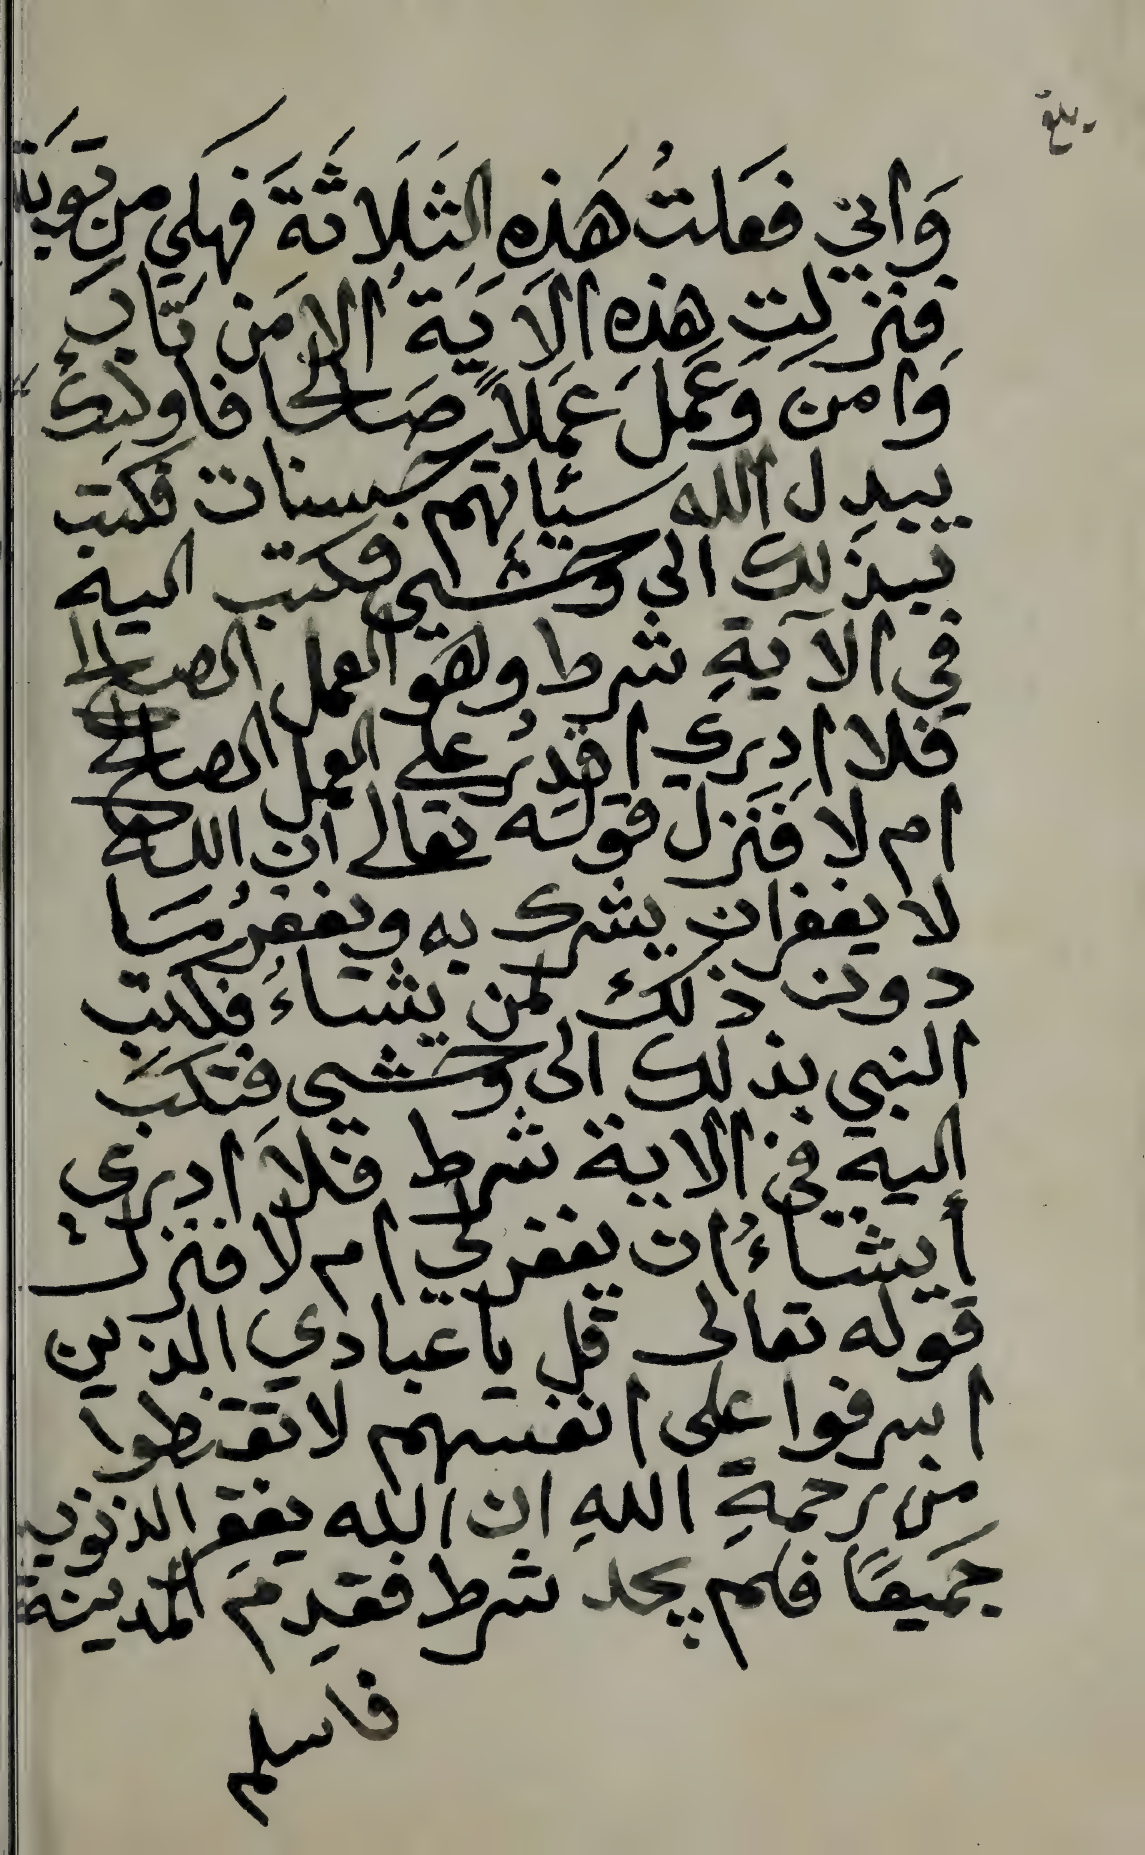 بلغ
وَاني فعَلتُ هَذه الثَلَاثَةَ فهَلي من تَوبَة
فنَزلتِ هذه الاَيَةُ الا مَن تَابَ
وَامنَ وَعَمَلَ عَمَلاً صَالحا فاوليكَ
يبدل الله سئياتهم حسنات فكتب
بذلك الى وحشي فكتب اليه
في الآيةِ شرط وهَو العمل الصالح
فلا ادري اقدرُ على العمل الصالح
ام لا فَنَزل قولَه تعالى ان الله
لا يغفر ان يشرك به ويغفرُ مَا
دون ذلك لمن يشَاءُ فكتب
النبي بذلك الى وحشي فتكبَ
اليه في الاية شرط فلاَ ادرى
أيشَاءُ ان يغفر لي ام لا فنزلت
قوله تعالى قل يا عبادي الذين
اسرفوا على انفسهم لا تقنطوا
من رحمةِ اللهِ ان الله يغفر الذنوب
جَميعًا فلم يجد شرط فقدِمَ المدينة
فاسلم